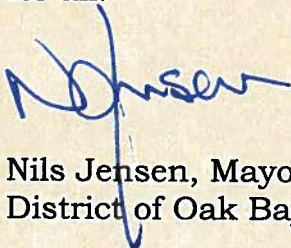 NJensen
Nils Jensen, Mayo
District of Oak Bay